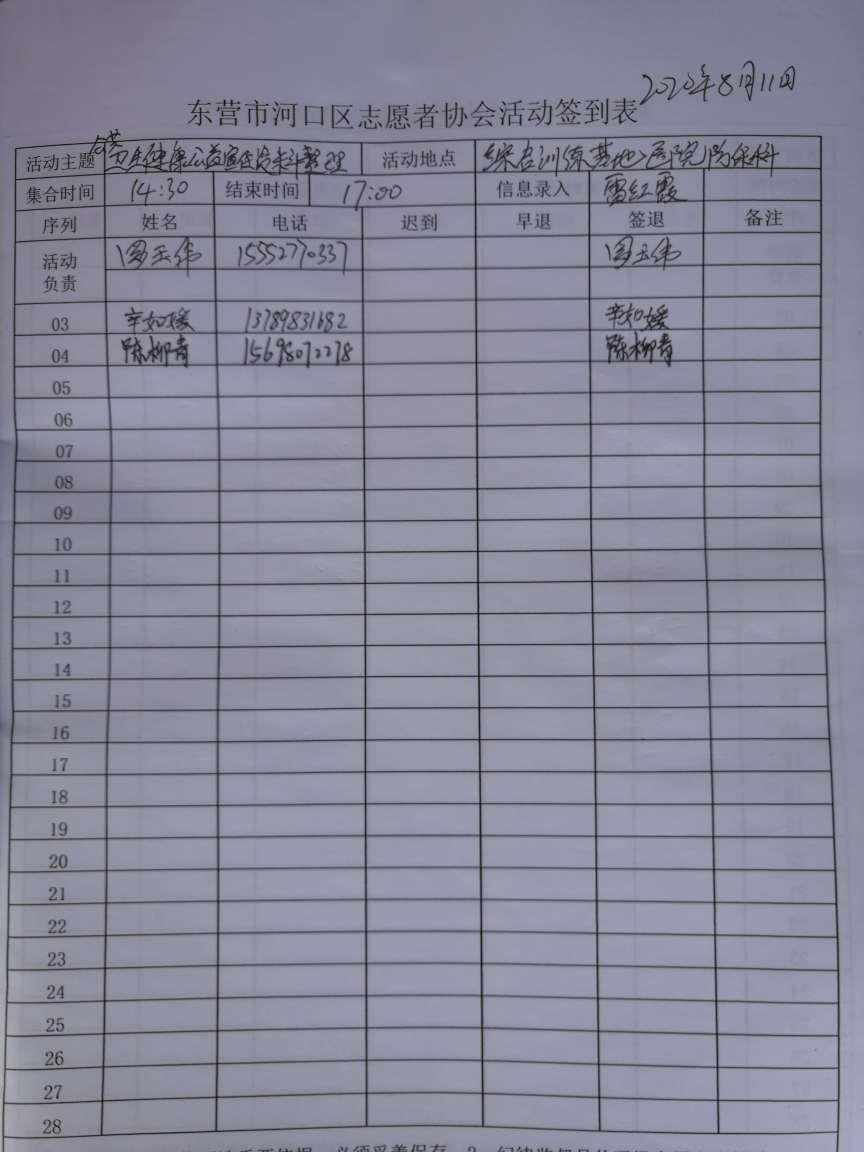 2020年8月11日
东营市河口区志愿者协会活动签到表
活动主题 卫生健康公益宣传资料整理 活动地点 综合训练基地、医院防保科
集合时间 14:30 结束时间 17:00 信息录入 雷红霞
序列 姓名 电话 迟到 早退 签退 备注
活动负责 周玉伟 15552770337 周玉伟
03 辛如媛 13789831682 辛如媛
04 陈柳青 15698072278 陈柳青
05
06
07
08
09
10
11
12
13
14
15
16
17
18
19
20
21
22
23
24
25
26
27
28